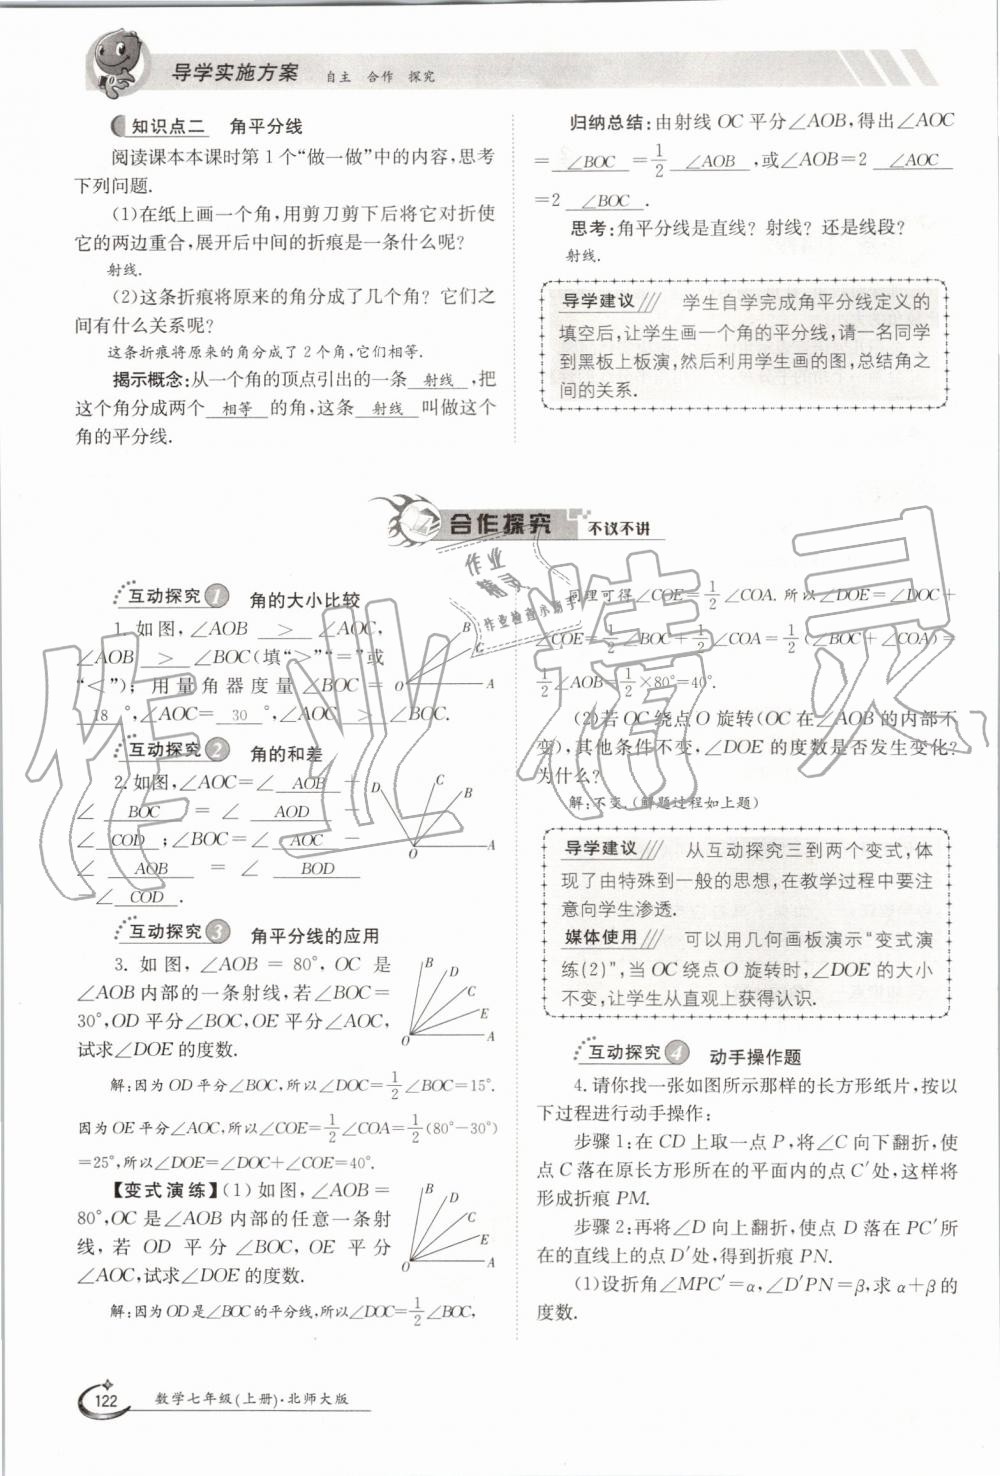 导学实施方案 自主 合作 探究
知识点二 角平分线
阅读课本本课时第1个“做一做”中的内容,思考
下列问题.
(1)在纸上画一个角,用剪刀剪下后将它对折使
它的两边重合,展开后中间的折痕是一条什么呢?
射线.
(2)这条折痕将原来的角分成了几个角? 它们之
间有什么关系呢?
这条折痕将原来的角分成了2个角,它们相等.
揭示概念:从一个角的顶点引出的一条 射线 ,把
这个角分成两个 相等 的角,这条 射线 叫做这个
角的平分线.
归纳总结:由射线OC平分∠AOB,得出∠AOC
= ∠BOC =1/2 ∠AOB ,或∠AOB=2 ∠AOC
=2 ∠BOC .
思考:角平分线是直线? 射线? 还是线段?
射线.
导学建议/// 学生自学完成角平分线定义的
填空后,让学生画一个角的平分线,请一名同学
到黑板上板演,然后利用学生画的图,总结角之
间的关系.
合作探究 不议不讲
互动探究1 角的大小比较
1.如图,∠AOB > ∠AOC,
∠AOB > ∠BOC(填“>”“=”或
“<”);用量角器度量∠BOC=
18 °,∠AOC= 30 °,∠AOC > ∠BOC.
B
C
O A
互动探究2 角的和差
2.如图,∠AOC=∠ AOB +
∠ BOC = ∠ AOD -
∠ COD ;∠BOC=∠ AOC -
∠ AOB = ∠ BOD -
∠ COD .
D C B
O A
互动探究3 角平分线的应用
3. 如图,∠AOB = 80°,OC 是
∠AOB内部的一条射线,若∠BOC=
30°,OD平分∠BOC,OE平分∠AOC,
试求∠DOE的度数.
B D
C
E
O A
解:因为OD平分∠BOC,所以∠DOC=1/2∠BOC=15°.
因为OE平分∠AOC,所以∠COE=1/2∠COA=1/2(80°-30°)
=25°,所以∠DOE=∠DOC+∠COE=40°.
【变式演练】(1)如图,∠AOB=
80°,OC是∠AOB内部的任意一条射
线,若 OD 平分∠BOC,OE 平分
∠AOC,试求∠DOE的度数.
B D
C
E
O A
解:因为OD是∠BOC的平分线,所以∠DOC=1/2∠BOC,
同理可得∠COE=1/2∠COA.所以∠DOE=∠DOC+
∠COE=1/2∠BOC+1/2∠COA=1/2(∠BOC+∠COA)=
1/2∠AOB=1/2×80°=40°.
(2)若OC绕点O旋转(OC在∠AOB的内部不
变),其他条件不变,∠DOE的度数是否发生变化?
为什么?
解:不变.(解题过程如上题)
导学建议/// 从互动探究三到两个变式,体
现了由特殊到一般的思想,在教学过程中要注
意向学生渗透.
媒体使用/// 可以用几何画板演示“变式演
练(2)”,当OC绕点O旋转时,∠DOE的大小
不变,让学生从直观上获得认识.
互动探究4 动手操作题
4.请你找一张如图所示那样的长方形纸片,按以
下过程进行动手操作:
步骤1:在CD上取一点P,将∠C向下翻折,使
点C落在原长方形所在的平面内的点C′处,这样将
形成折痕PM.
步骤2:再将∠D向上翻折,使点D落在PC′所
在的直线上的点D′处,得到折痕PN.
(1)设折角∠MPC′=α,∠D′PN=β,求α+β的
度数.
作业精灵
作业
精灵
作业检查小助手
122 数学七年级(上册)·北师大版